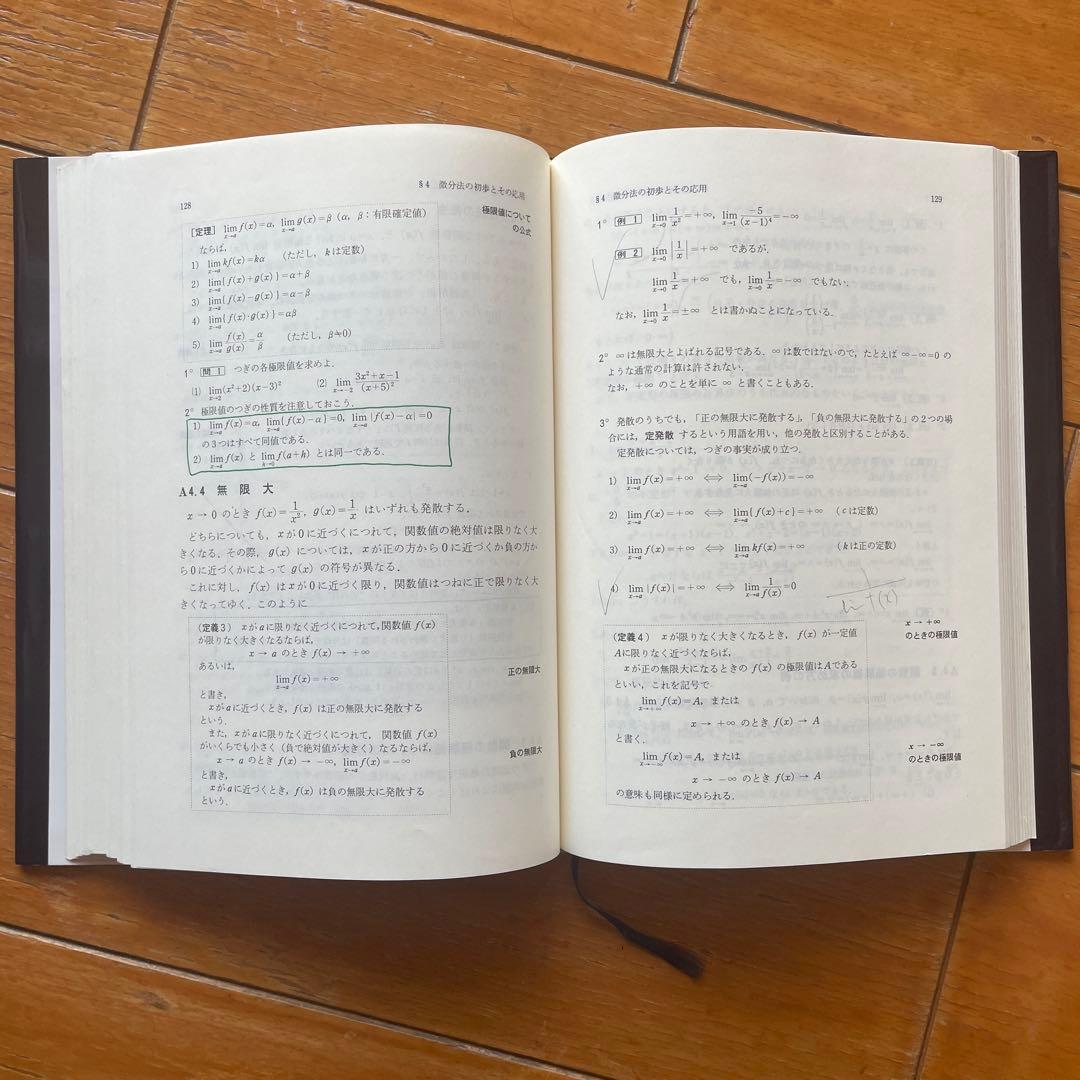 §4 微分法の初歩とその応用
128
[定理] lim_{x→a} f(x)=α, lim_{x→a} g(x)=β (α, β：有限確定値)
極限値について
の公式
ならば,
1) lim_{x→a} kf(x)=kα (ただし, kは定数)
2) lim_{x→a} {f(x)+g(x)}=α+β
3) lim_{x→a} {f(x)−g(x)}=α−β
4) lim_{x→a} {f(x)·g(x)}=αβ
5) lim_{x→a} f(x)/g(x)=α/β (ただし, β≒0)
1° 問1 つぎの各極限値を求めよ.
(1) lim_{x→2} (x²+2)(x−3)² (2) lim_{x→−2} (3x²+x−1)/(x+5)²
2° 極限値のつぎの性質を注意しておこう.
1) lim_{x→a} f(x)=α, lim_{x→a} {f(x)−α}=0, lim_{x→a} |f(x)−α|=0
の3つはすべて同値である.
2) lim_{x→a} f(x) と lim_{h→0} f(a+h) とは同一である.
A4.4 無限大
x→0 のとき f(x)=1/x², g(x)=1/x はいずれも発散する.
どちらについても, xが0に近づくにつれて, 関数値の絶対値は限りなく大
きくなる. その際, g(x) については, xが正の方から0に近づくか負の方か
ら0に近づくかによって g(x) の符号が異なる.
これに対し, f(x) はxが0に近づく限り, 関数値はつねに正で限りなく大
きくなってゆく. このように
(定義3) xがaに限りなく近づくにつれて, 関数値 f(x)
が限りなく大きくなるならば,
x→a のとき f(x)→+∞
あるいは,
正の無限大
lim_{x→a} f(x)=+∞
と書き,
xがaに近づくとき, f(x) は正の無限大に発散する
という.
また, xがaに限りなく近づくにつれて, 関数値 f(x)
がいくらでも小さく (負で絶対値が大きく) なるならば,
負の無限大
x→a のとき f(x)→−∞, lim_{x→a} f(x)=−∞
と書き,
xがaに近づくとき, f(x) は負の無限大に発散する
という.
§4 微分法の初歩とその応用
129
1° 例1 lim_{x→0} 1/x²=+∞, lim_{x→1} −5/(x−1)⁴=−∞
例2 lim_{x→0} |1/x|=+∞ であるが,
lim_{x→0} 1/x=+∞ でも, lim_{x→0} 1/x=−∞ でもない.
なお, lim_{x→0} 1/x=±∞ とは書かぬことになっている.
2° ∞は無限大とよばれる記号である. ∞は数ではないので, たとえば ∞−∞=0 の
ような通常の計算は許されない.
なお, +∞ のことを単に ∞ と書くこともある.
3° 発散のうちでも, 「正の無限大に発散する」, 「負の無限大に発散する」の2つの場
合には, 定発散 するという用語を用い, 他の発散と区別することがある.
定発散については, つぎの事実が成り立つ.
1) lim_{x→a} f(x)=+∞ ⟺ lim_{x→a} (−f(x))=−∞
2) lim_{x→a} f(x)=+∞ ⟺ lim_{x→a} {f(x)+c}=+∞ (cは定数)
3) lim_{x→a} f(x)=+∞ ⟺ lim_{x→a} kf(x)=+∞ (kは正の定数)
4) lim_{x→a} |f(x)|=+∞ ⟺ lim_{x→a} 1/f(x)=0
lim f(x)
x→+∞
のときの極限値
(定義4) xが限りなく大きくなるとき, f(x) が一定値
Aに限りなく近づくならば,
xが正の無限大になるときの f(x) の極限値はAである
といい, これを記号で
lim_{x→+∞} f(x)=A, または
x→+∞ のとき f(x)→A
と書く.
x→−∞
のときの極限値
lim_{x→−∞} f(x)=A, または
x→−∞ のとき f(x)→A
の意味も同様に定められる.